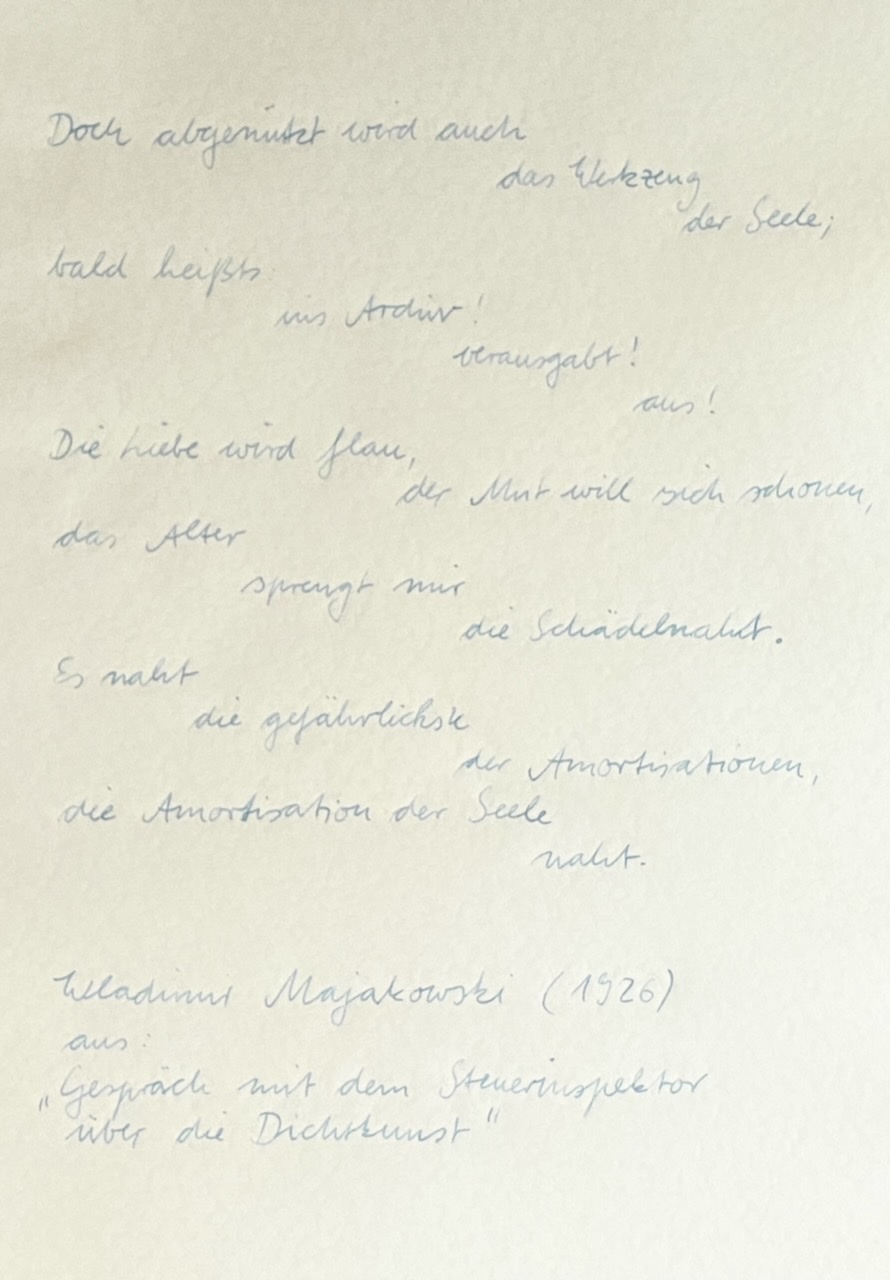 Doch abgenützt wird auch
das Werkzeug
der Seele;
bald heißts:
ins Archiv!
verausgabt!
aus!
Die Liebe wird flau,
der Mut will sich schonen,
das Alter
sprengt mir
die Schädelnaht.
Es naht
die gefährlichste
der Amortisationen,
die Amortisation der Seele
naht.
Wladimir Majakowski (1926)
aus:
„Gespräch mit dem Steuerinspektor
über die Dichtkunst"